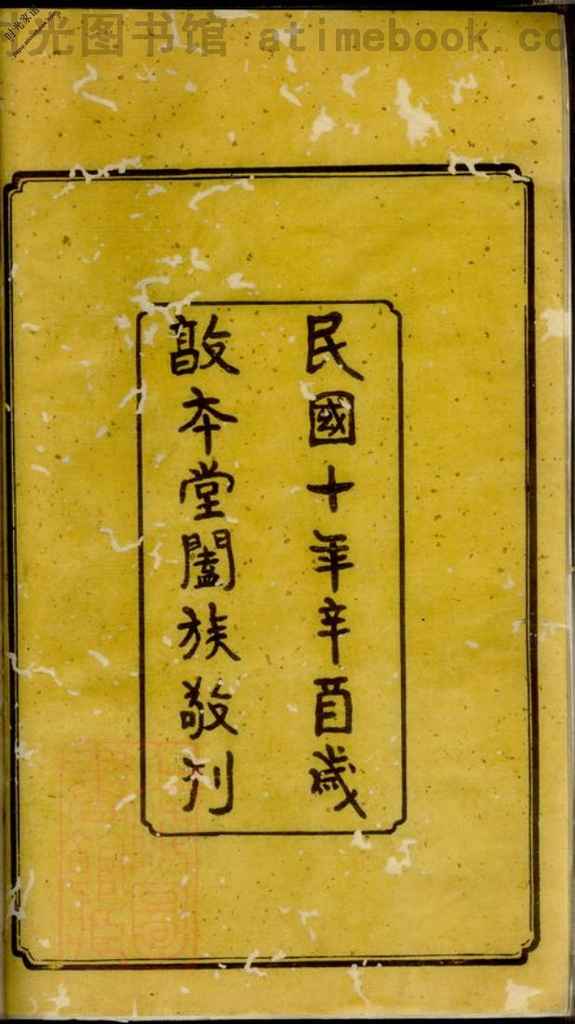 时光图书馆 atimebook.co
时光家谱
民國十年辛酉歲
敦本堂闔族敬刊